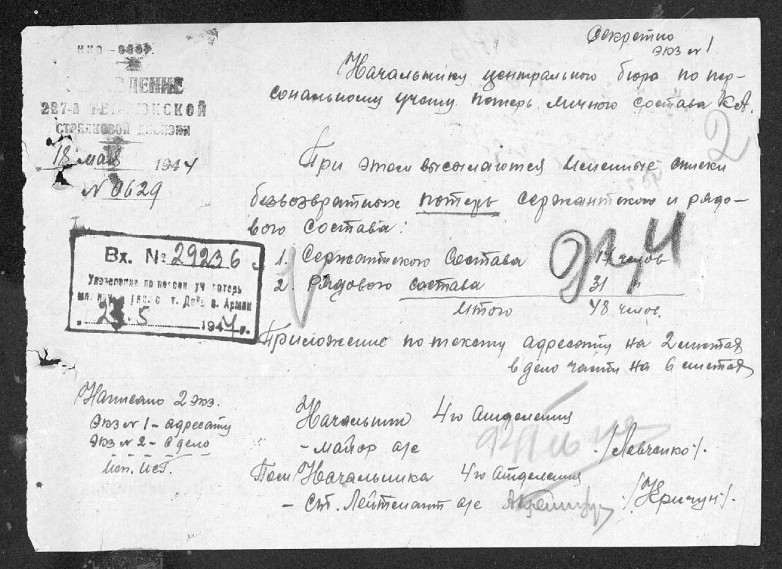 Секретно
экз № 1
НКО-СССР
237-й
СТРЕЛКОВОЙ ДИВИЗИИ
18 мая 1944
№ 0629
Начальнику центрального бюро по пер-
сональному учету потерь личного состава КА.
2
При этом высылаются именные списки
безвозвратных потерь сержантского и рядо-
вого состава:
1. Сержантского Состава 17 челов
2. рядового состава 31 "
Итого 48 челов.
Вх. № 29236 с
Управление по персон уч потерь
мл. нач и ряд. с т. Дей в. Армии
23.5 1944 г.
Приложение по тексту адресату на 2 листах
в дело части на 6 листах
Написано 2 экз.
экз № 1 - адресату
экз № 2 - в дело
Исп.
Начальник 4го отделения
- майор а/с /Левченко/.
Пом Начальника 4го отделения
- Ст. Лейтенант а/с /Кричун/.